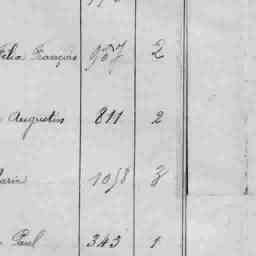 Félix François 957 2
Augustin 811 2
Marie 1058 3
Paul 343 1